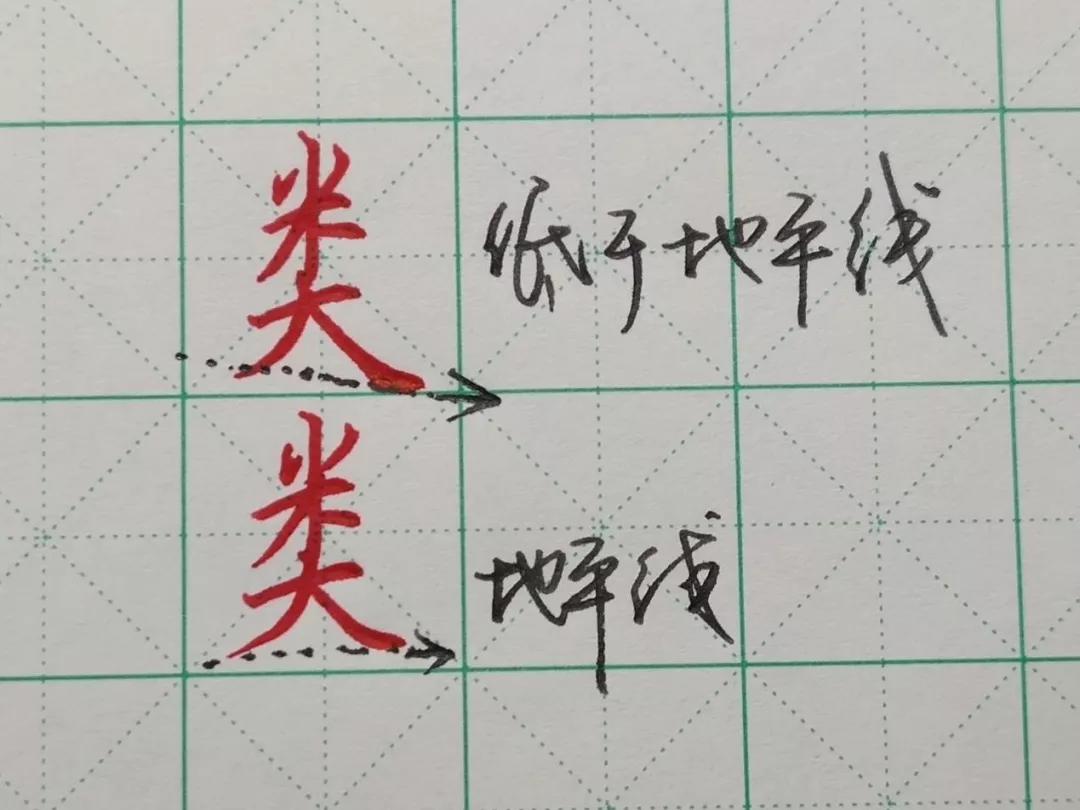 类 低于地平线
类 地平线